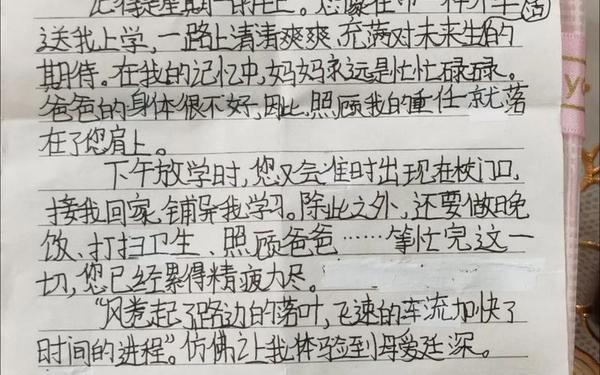 记得是星期一的早上。您像往常一样开车
送我上学，一路上清清爽爽，充满对未来生活的
期待。在我的记忆中，妈妈永远是忙忙碌碌。
爸爸的身体很不好，因此，照顾我的重任就落
在了您肩上。
下午放学时，您又会准时出现在校门口，
接我回家，铺导我学习。除此之外，还要做晚
饭、打扫卫生、照顾爸爸……等忙完这一
切，您已经累得精疲力尽。
“风惹起了路边的落叶，飞速的车流加快了
时间的进程”。仿佛让我体验到母爱廷深。